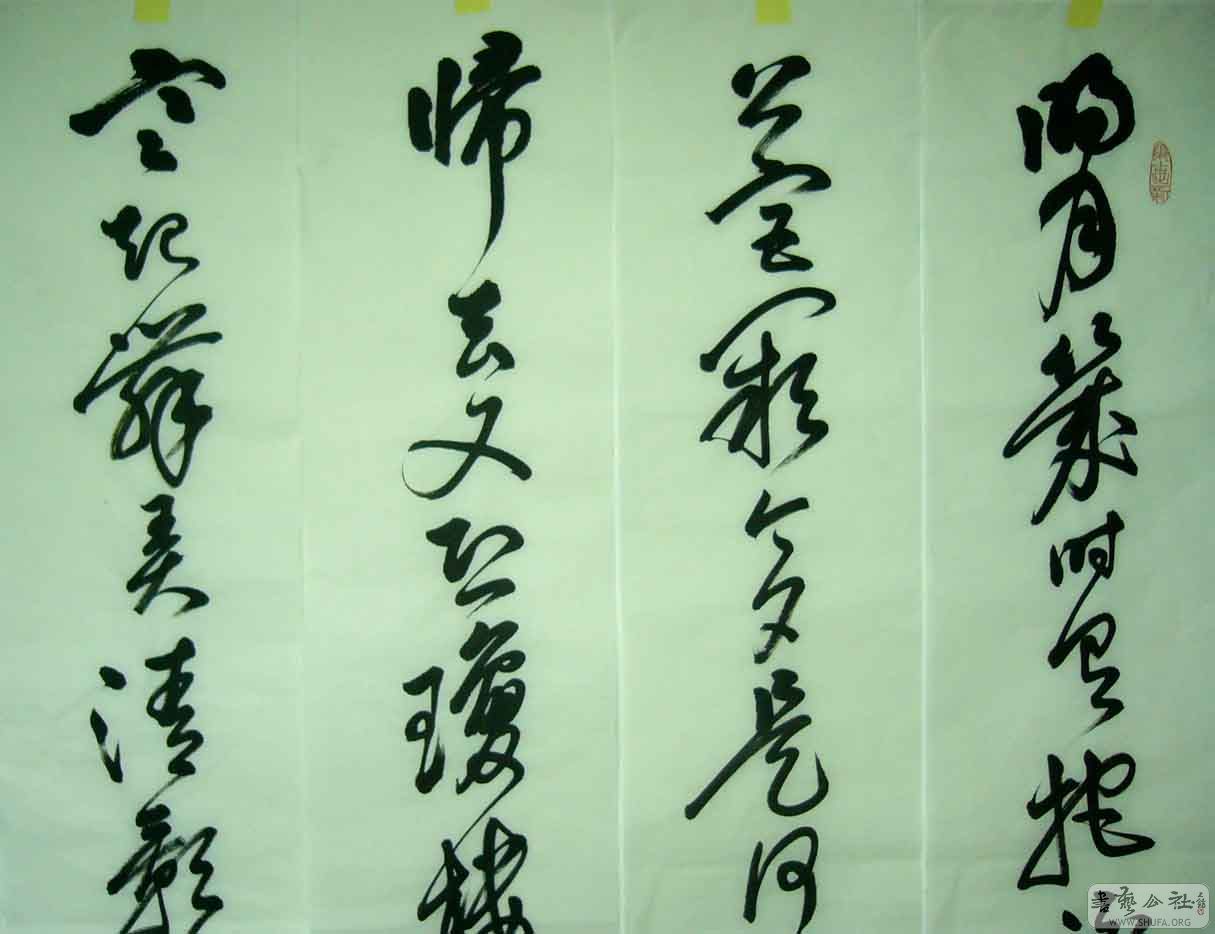 明月幾时有把
上宫闕今夕是何
帰去又恐瓊樓
寒起舞弄清影
書藝公社
WWW.SHUFA.ORG